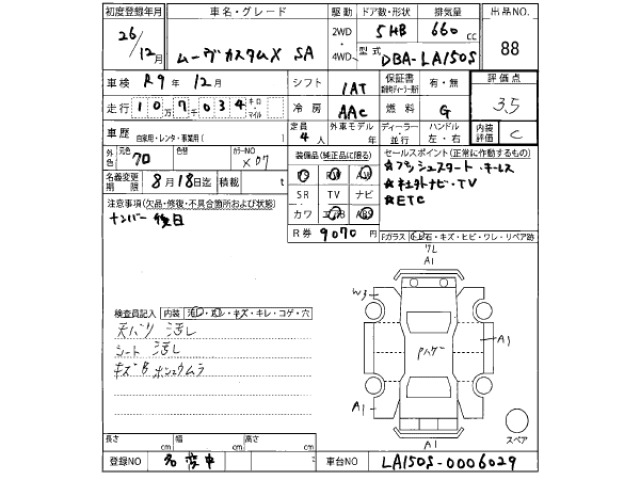 初度登録年月 車名・グレード 駆動 ドア数・形状 排気量 出品NO.
26/12月 ムーヴカスタムX SA 2WD・4WD 5HB 660cc 88
型式 DBA-LA150S
車検 R9年 12月 シフト IAT 保証書 有・無 評価点
走行 107034 キロ マイル 冷房 AAC 燃料 G 3.5
車歴 自家用・レンタ・事業用( ) 定員 4人 外車モデル 年 ディーラー・並行 ハンドル 左・右 内装評価 C
外色 元色 色替 カラーNO X07 装備品(純正品に限る) セールスポイント(正常に作動するもの)
名義変更期限 8月18日迄 積載 t PS PW AW
★プッシュスタート・キーレス
★社外ナビ・TV
★ETC
SR TV ナビ
注意事項(欠品・修復・不具合箇所および状態) カワ エアB ABS
ナンバー後日 R券 9070円 Fガラス 飛石・キズ・ヒビ・ワレ・リペア跡
ワレ
A1
検査員記入 内装 汚レ・スレ・キズ・キレ・コゲ・穴 W3
天バリ 汚レ A1
シート 汚レ Pハゲ
キズB ボンネットムラ
A1
A1
スペア
長さ cm 幅 cm 高さ cm
登録NO 名変中 車台NO LA150S-0006029